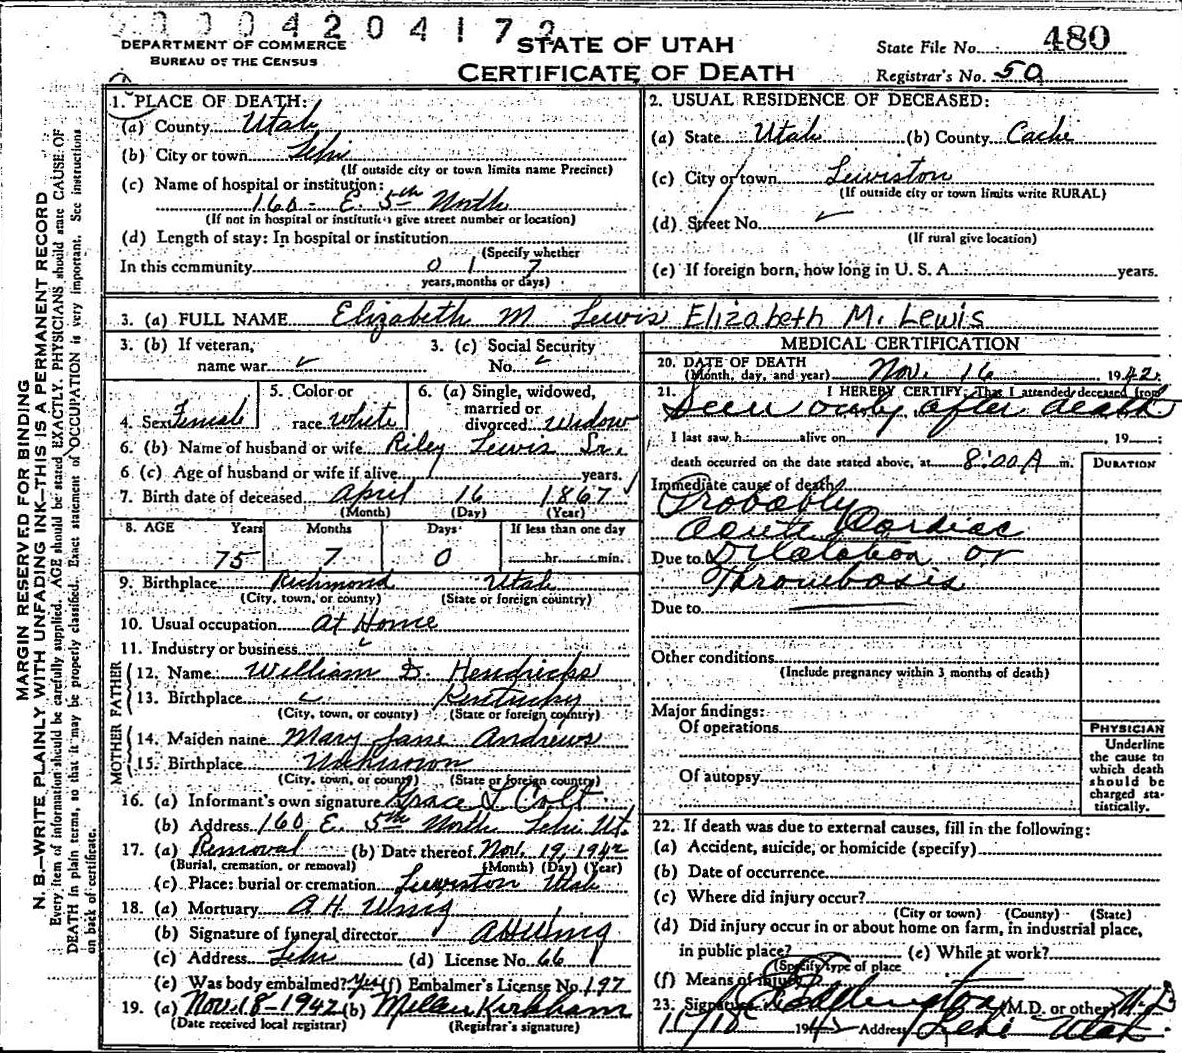 0004204172
DEPARTMENT OF COMMERCE
BUREAU OF THE CENSUS
STATE OF UTAH
CERTIFICATE OF DEATH
State File No. 480
Registrar's No. 50
MARGIN RESERVED FOR BINDING
N. B.—WRITE PLAINLY WITH UNFADING INK—THIS IS A PERMANENT RECORD
Every item of information should be carefully supplied. AGE should be stated EXACTLY. PHYSICIANS should state CAUSE OF
DEATH in plain terms, so that it may be properly classified. Exact statement of OCCUPATION is very important. See instructions
on back of certificate.
1. PLACE OF DEATH:
(a) County Utah
(b) City or town Lehi
(If outside city or town limits name Precinct)
(c) Name of hospital or institution:
160 - E. 5th North
(If not in hospital or institution give street number or location)
(d) Length of stay: In hospital or institution
(Specify whether
In this community 0 1 7
years, months or days)
2. USUAL RESIDENCE OF DECEASED:
(a) State Utah (b) County Cache
(c) City or town Lewiston
(If outside city or town limits write RURAL)
(d) Street No.
(If rural give location)
(e) If foreign born, how long in U. S. A. years.
3. (a) FULL NAME Elizabeth M Lewis Elizabeth M. Lewis
3. (b) If veteran,
name war
3. (c) Social Security
No.
4. Sex Female
5. Color or
race white
6. (a) Single, widowed,
married or
divorced Widow
6. (b) Name of husband or wife Riley Lewis Sr.
6. (c) Age of husband or wife if alive years.
7. Birth date of deceased April 16 1867
(Month) (Day) (Year)
8. AGE Years Months Days If less than one day
75 7 0 hr. min.
9. Birthplace Richmond Utah
(City, town, or county) (State or foreign country)
10. Usual occupation At Home
11. Industry or business
FATHER
12. Name William D. Hendricks
13. Birthplace Kentucky
(City, town, or county) (State or foreign country)
MOTHER
14. Maiden name Mary Jane Andrews
15. Birthplace Unknown
(City, town, or county) (State or foreign country)
16. (a) Informant's own signature Grace L Colt
(b) Address 160 E. 5th North Lehi Ut.
17. (a) Removal (b) Date thereof Nov. 19, 1942
(Burial, cremation, or removal) (Month) (Day) (Year)
(c) Place: burial or cremation Lewiston Utah
18. (a) Mortuary A. H.
(b) Signature of funeral director
(c) Address Lehi (d) License No. 66
(e) Was body embalmed? Yes (f) Embalmer's License No. 192
19. (a) Nov. 18-1942 (b) Kirkham
(Date received local registrar) (Registrar's signature)
MEDICAL CERTIFICATION
20. DATE OF DEATH
(Month, day, and year) Nov. 16 1942
21. I HEREBY CERTIFY: That I attended deceased from
Seen only after death
I last saw h alive on , 19
death occurred on the date stated above, at 8:00 A m.
DURATION
Immediate cause of death
Probably
Acute Cardiac
Due to Dilatation or
Thrombosis
Due to
Other conditions
(Include pregnancy within 3 months of death)
Major findings:
Of operations
Of autopsy
PHYSICIAN
Underline
the cause to
which death
should be
charged sta-
tistically.
22. If death was due to external causes, fill in the following:
(a) Accident, suicide, or homicide (specify)
(b) Date of occurrence
(c) Where did injury occur?
(City or town) (County) (State)
(d) Did injury occur in or about home on farm, in industrial place,
in public place? (e) While at work?
(Specify type of place
(f) Means of injury
23. Signature Eddington (M.D. or other) M.D
11/18 1942 Address Lehi Utah.